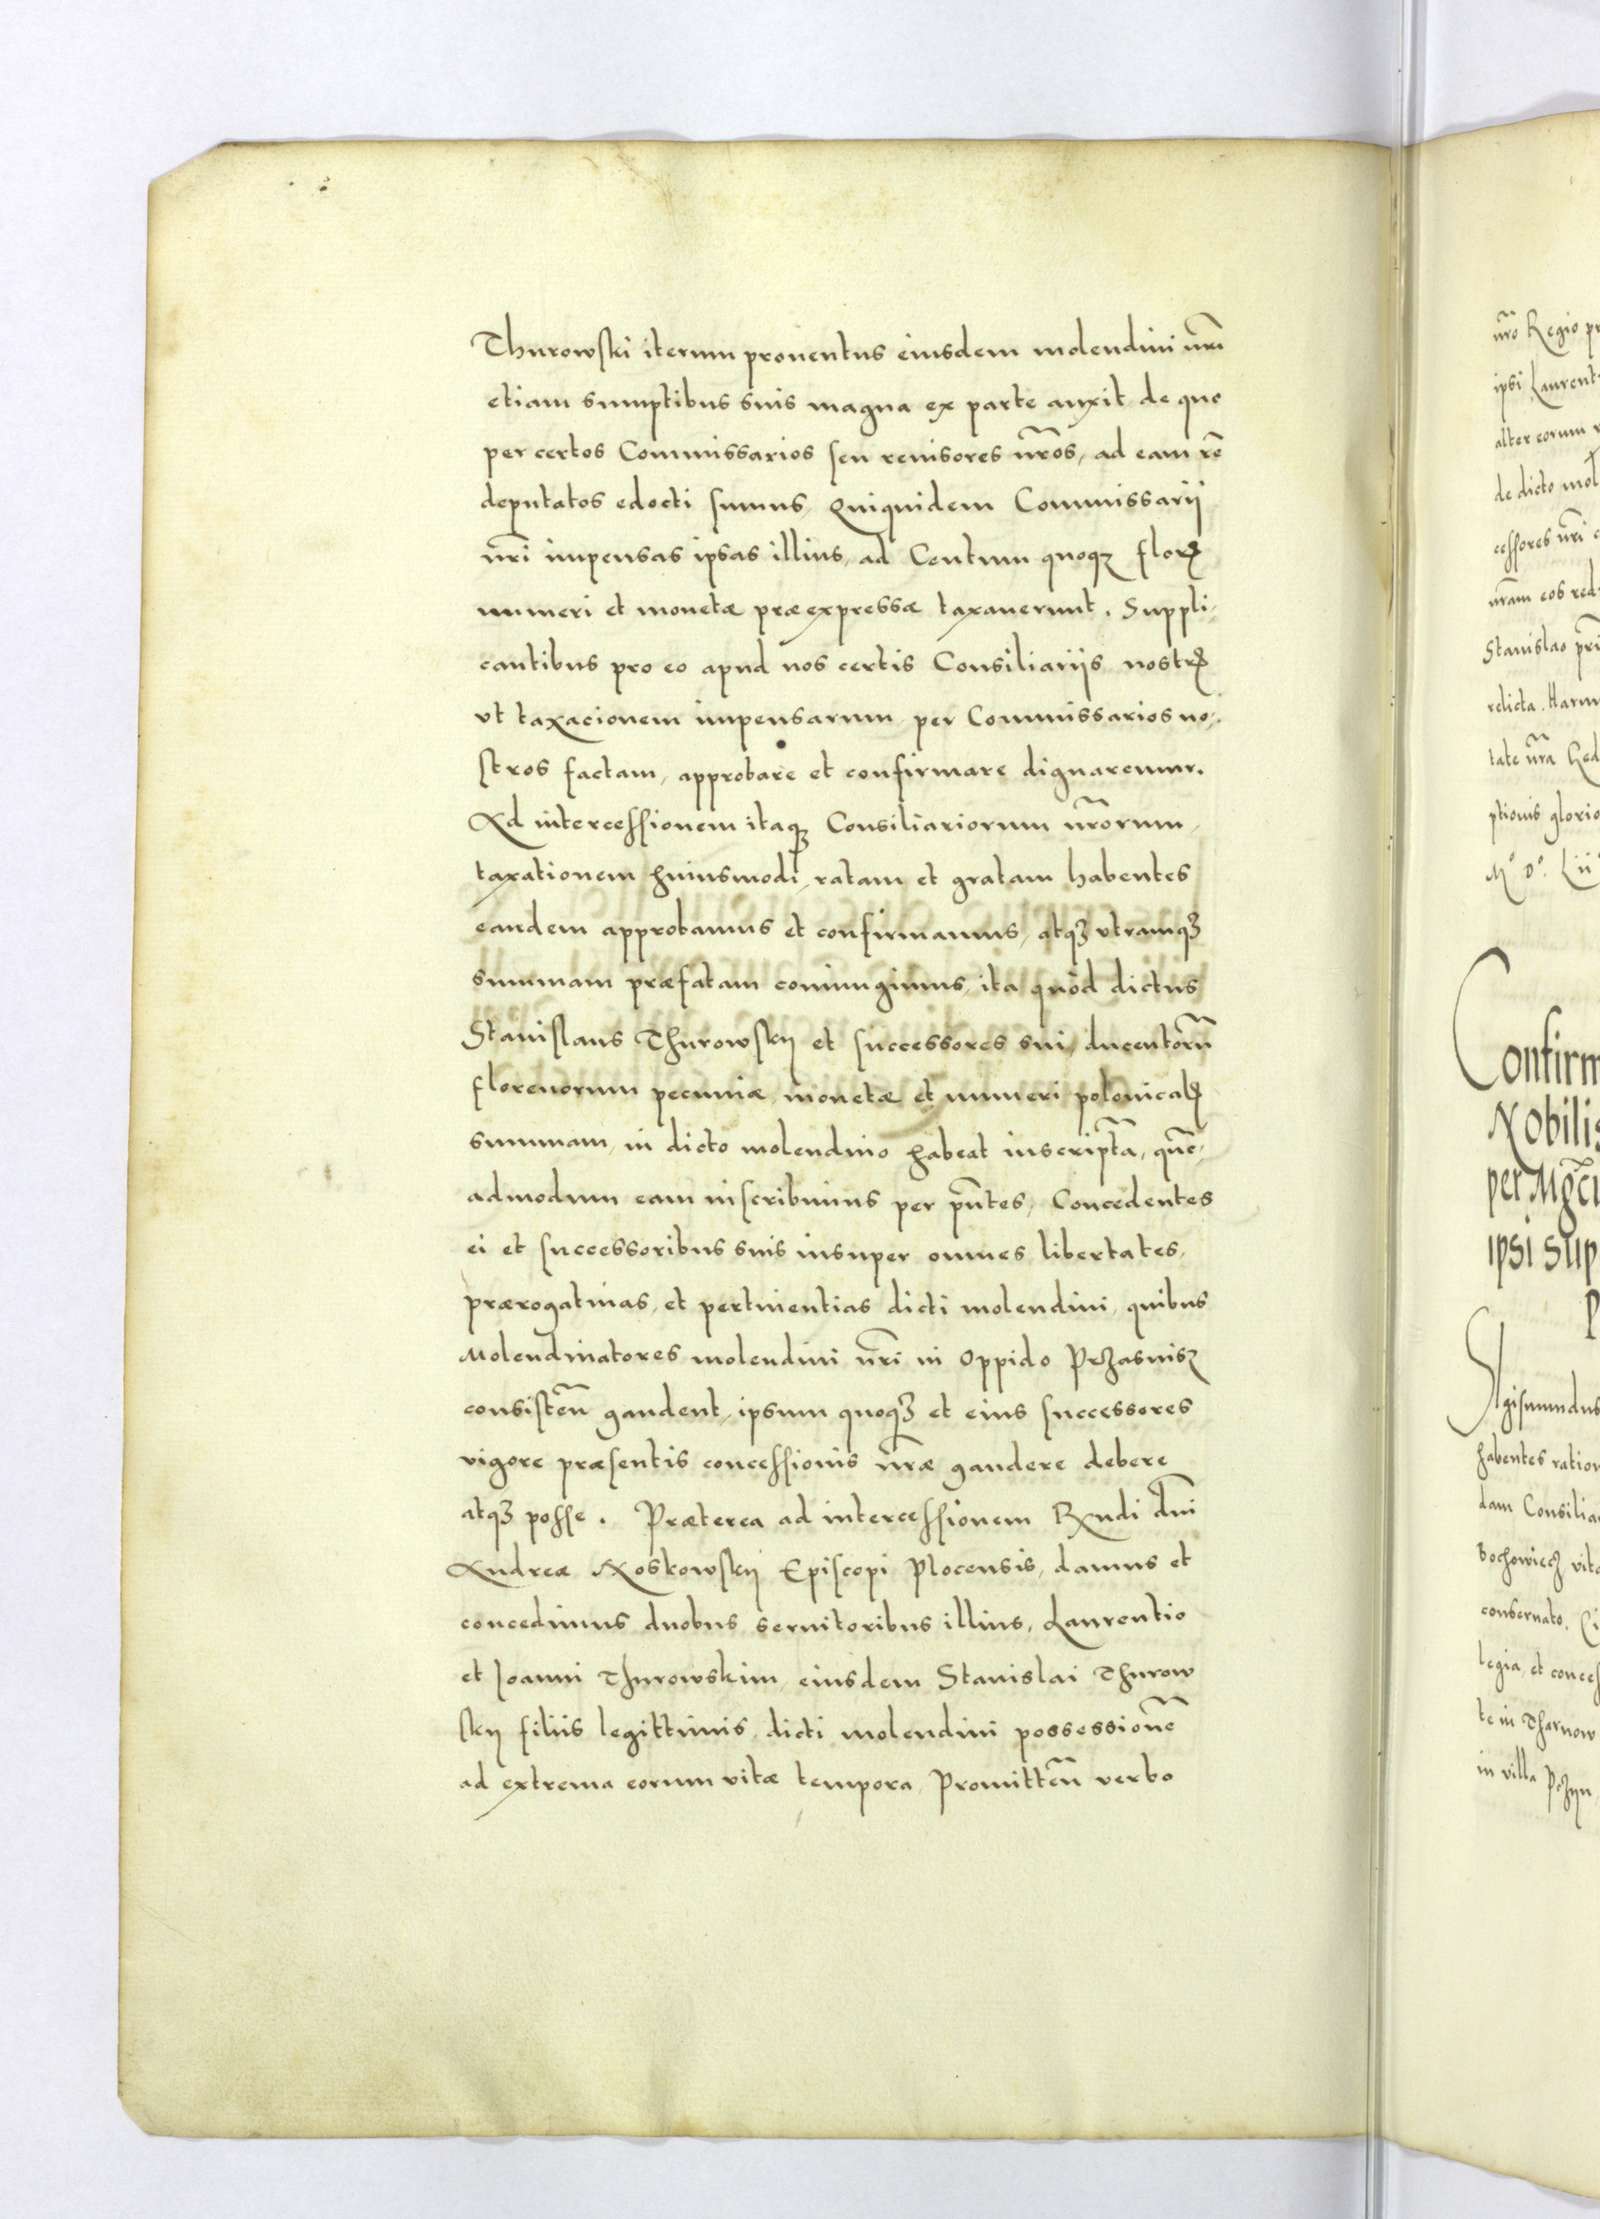 Thurowski iterum prouentus eiusdem molendini nr̃i
etiam sumptibus suis magna ex parte auxit de quo
per certos Commissarios seu reuisores nr̃os, ad eam rẽ
deputatos edocti sumus, Quiquidem Commissarii
nr̃i impensas ipsas illius, ad Centum quoqꝫ florꝭ
numeri et monetæ præexpressæ taxauerunt. Suppli-
cantibus pro eo apud nos certis Consiliariis nostrꝭ
vt taxacionem impensarum per Commissarios no-
stros factam, approbare et confirmare dignaremur.
Ad intercessionem itaqꝫ Consiliariorum nr̃orum,
taxationem huiusmodi, ratam et gratam habentes
eandem approbamus et confirmamus, atqꝫ vtramqꝫ
summam præfatam coniungimus, ita quod dictus
Stanislaus Thurowskij et successores sui, ducentorũ
florenorum pecuniæ, monetæ et numeri polonicalꝭ
summam, in dicto molendino habeat inscriptã, quẽ-
admodum eam inscribimus per pñtes, Concedentes
ei et successoribus suis insuper omnes libertates,
prærogatiuas, et pertinentias dicti molendini, quibus
Molendinatores molendini nr̃i in Oppido Przasnisz
consisteñ gaudent, ipsum quoqꝫ et eius successores
vigore præsentis concessionis nr̃æ gaudere debere
atqꝫ posse. Præterea ad intercessionem Rx̃ndi dñi
Andreæ Noskowskij Episcopi Plocensis, damus et
concedimus duobus seruitoribus illius, Laurentio
et Ioanni Thurowskim eiusdem Stanislai Thurow
skij filiis legittimis, dicti molendini possessionẽ
ad extrema eorum vitæ tempora, Promitteñ verbo
nr̃o Regio
ipsi Laurent
alter eorum
de dicto mol
cessores nr̃i
nr̃am eos red
Stanislao
relicta. Harum
tate nr̃a
ptionis glorio
Mº Dº. Lii
Confirm
Nobilis
per Mgci
ipsi sup
P
Sigismundus
habentes ration
dam Consilia
Bochowiecz vita
conseruato.
legia, et conces
te in Tharnow
in villa